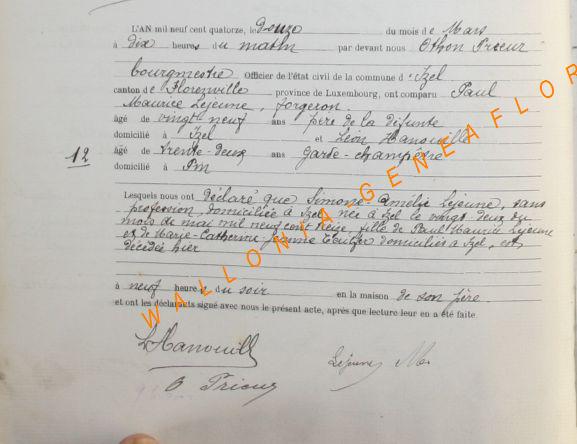 L'AN mil neuf cent quatorze, le douze du mois de Mars
à dix heures du matin par devant nous Othon Prieur
bourgmestre Officier de l'état civil de la commune d'Izel
canton de Florenville province de Luxembourg, ont comparu Paul
Maurice Lejeune, forgeron
âgé de vingt neuf ans père de la défunte
domicilié à Izel et Léon Hanouille
12 âgé de trente-deux ans Garde-champêtre
domicilié à Pin
Lesquels nous ont déclaré que Simone-Amélie Lejeune, sans
profession, domiciliée à Izel, née à Izel le vingt deux du
mois de mai mil neuf cent treize, fille de Paul Maurice Lejeune
et de Marie-Catherine domiciliés à Izel, est
décédée hier
à neuf heures du soir en la maison de son père
et ont les déclarants signé avec nous le présent acte, après que lecture leur en a été faite.
LHanouille
Lejeune M.
O Prieur
WALLONIA-GENEAFLOR